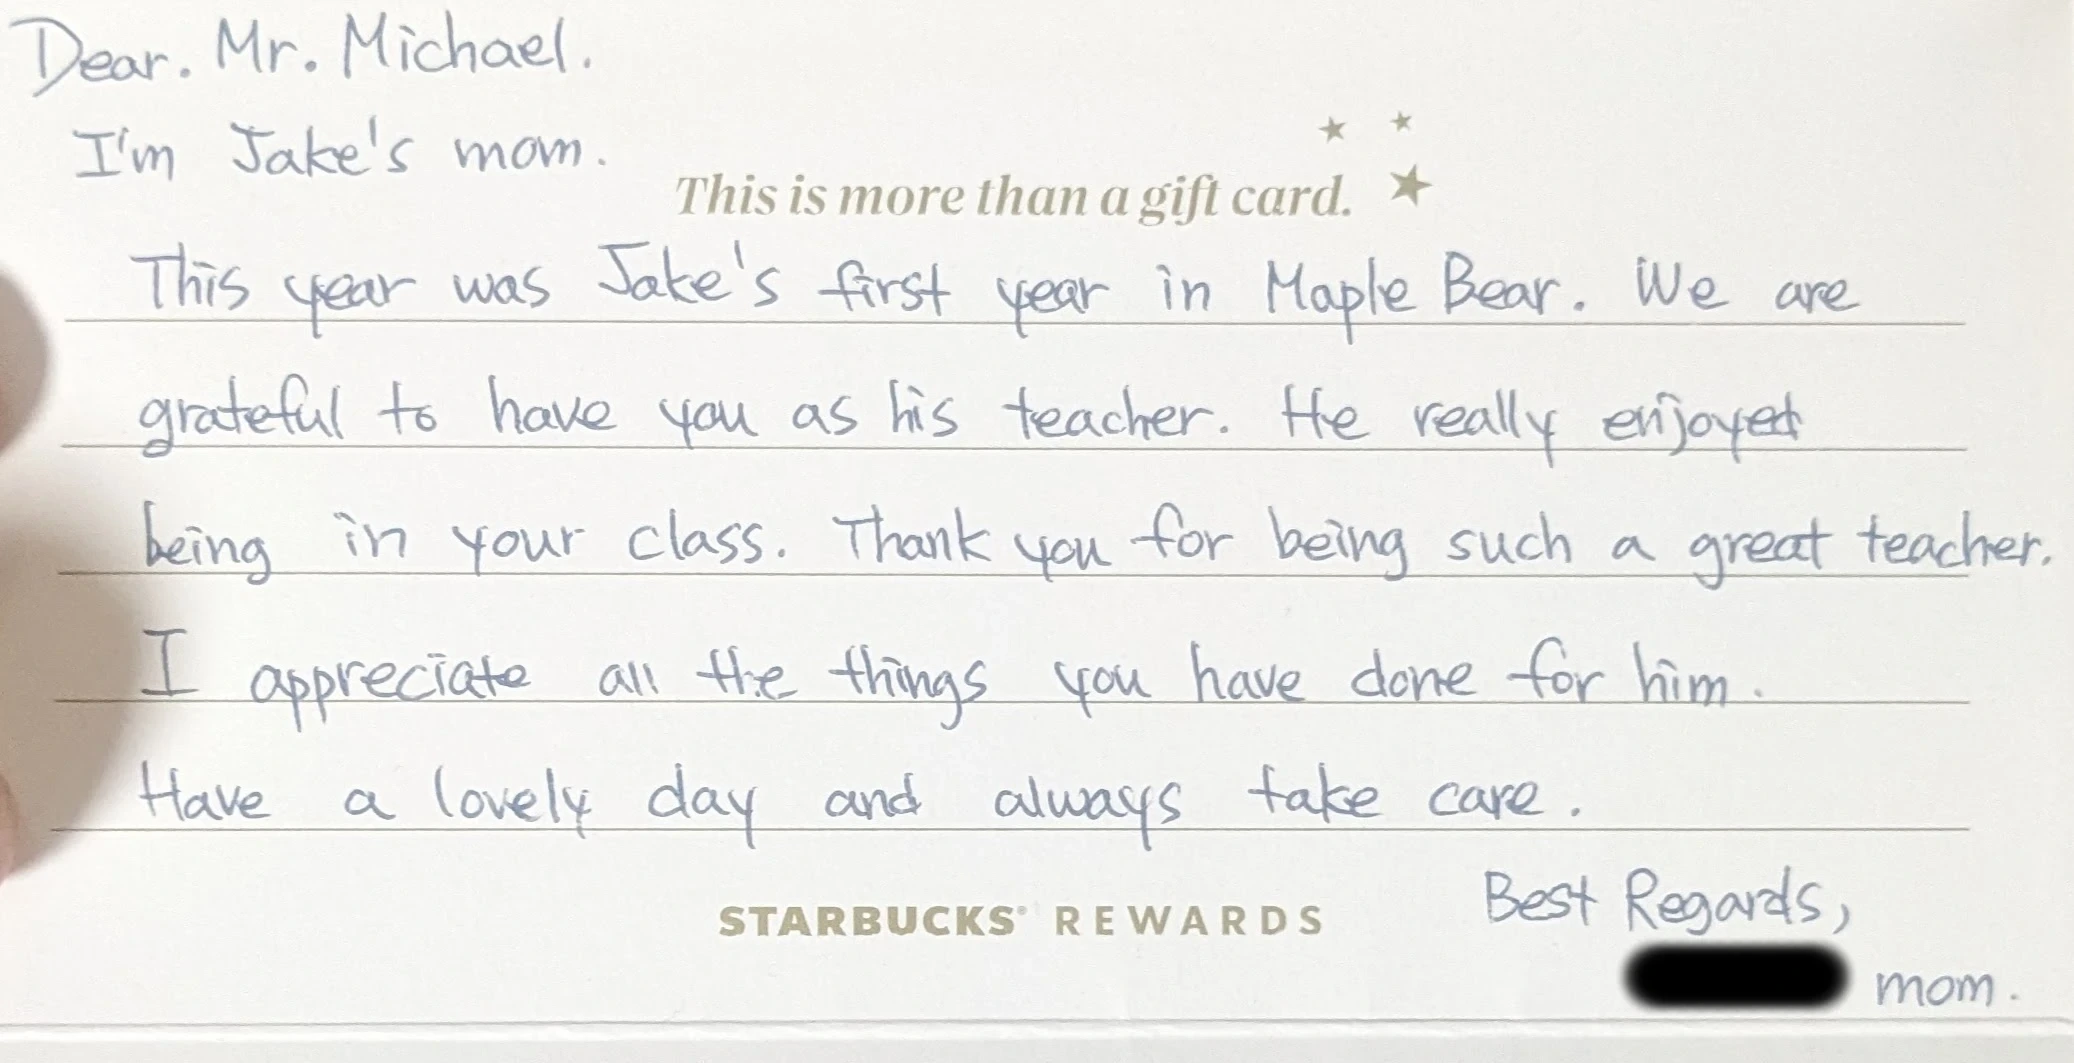 Dear. Mr. Michael.
I'm Jake's mom.
This is more than a gift card.
This year was Jake's first year in Maple Bear. We are
grateful to have you as his teacher. He really enjoyed
being in your class. Thank you for being such a great teacher.
I appreciate all the things you have done for him.
Have a lovely day and always take care.
STARBUCKS® REWARDS
Best Regards,
mom.